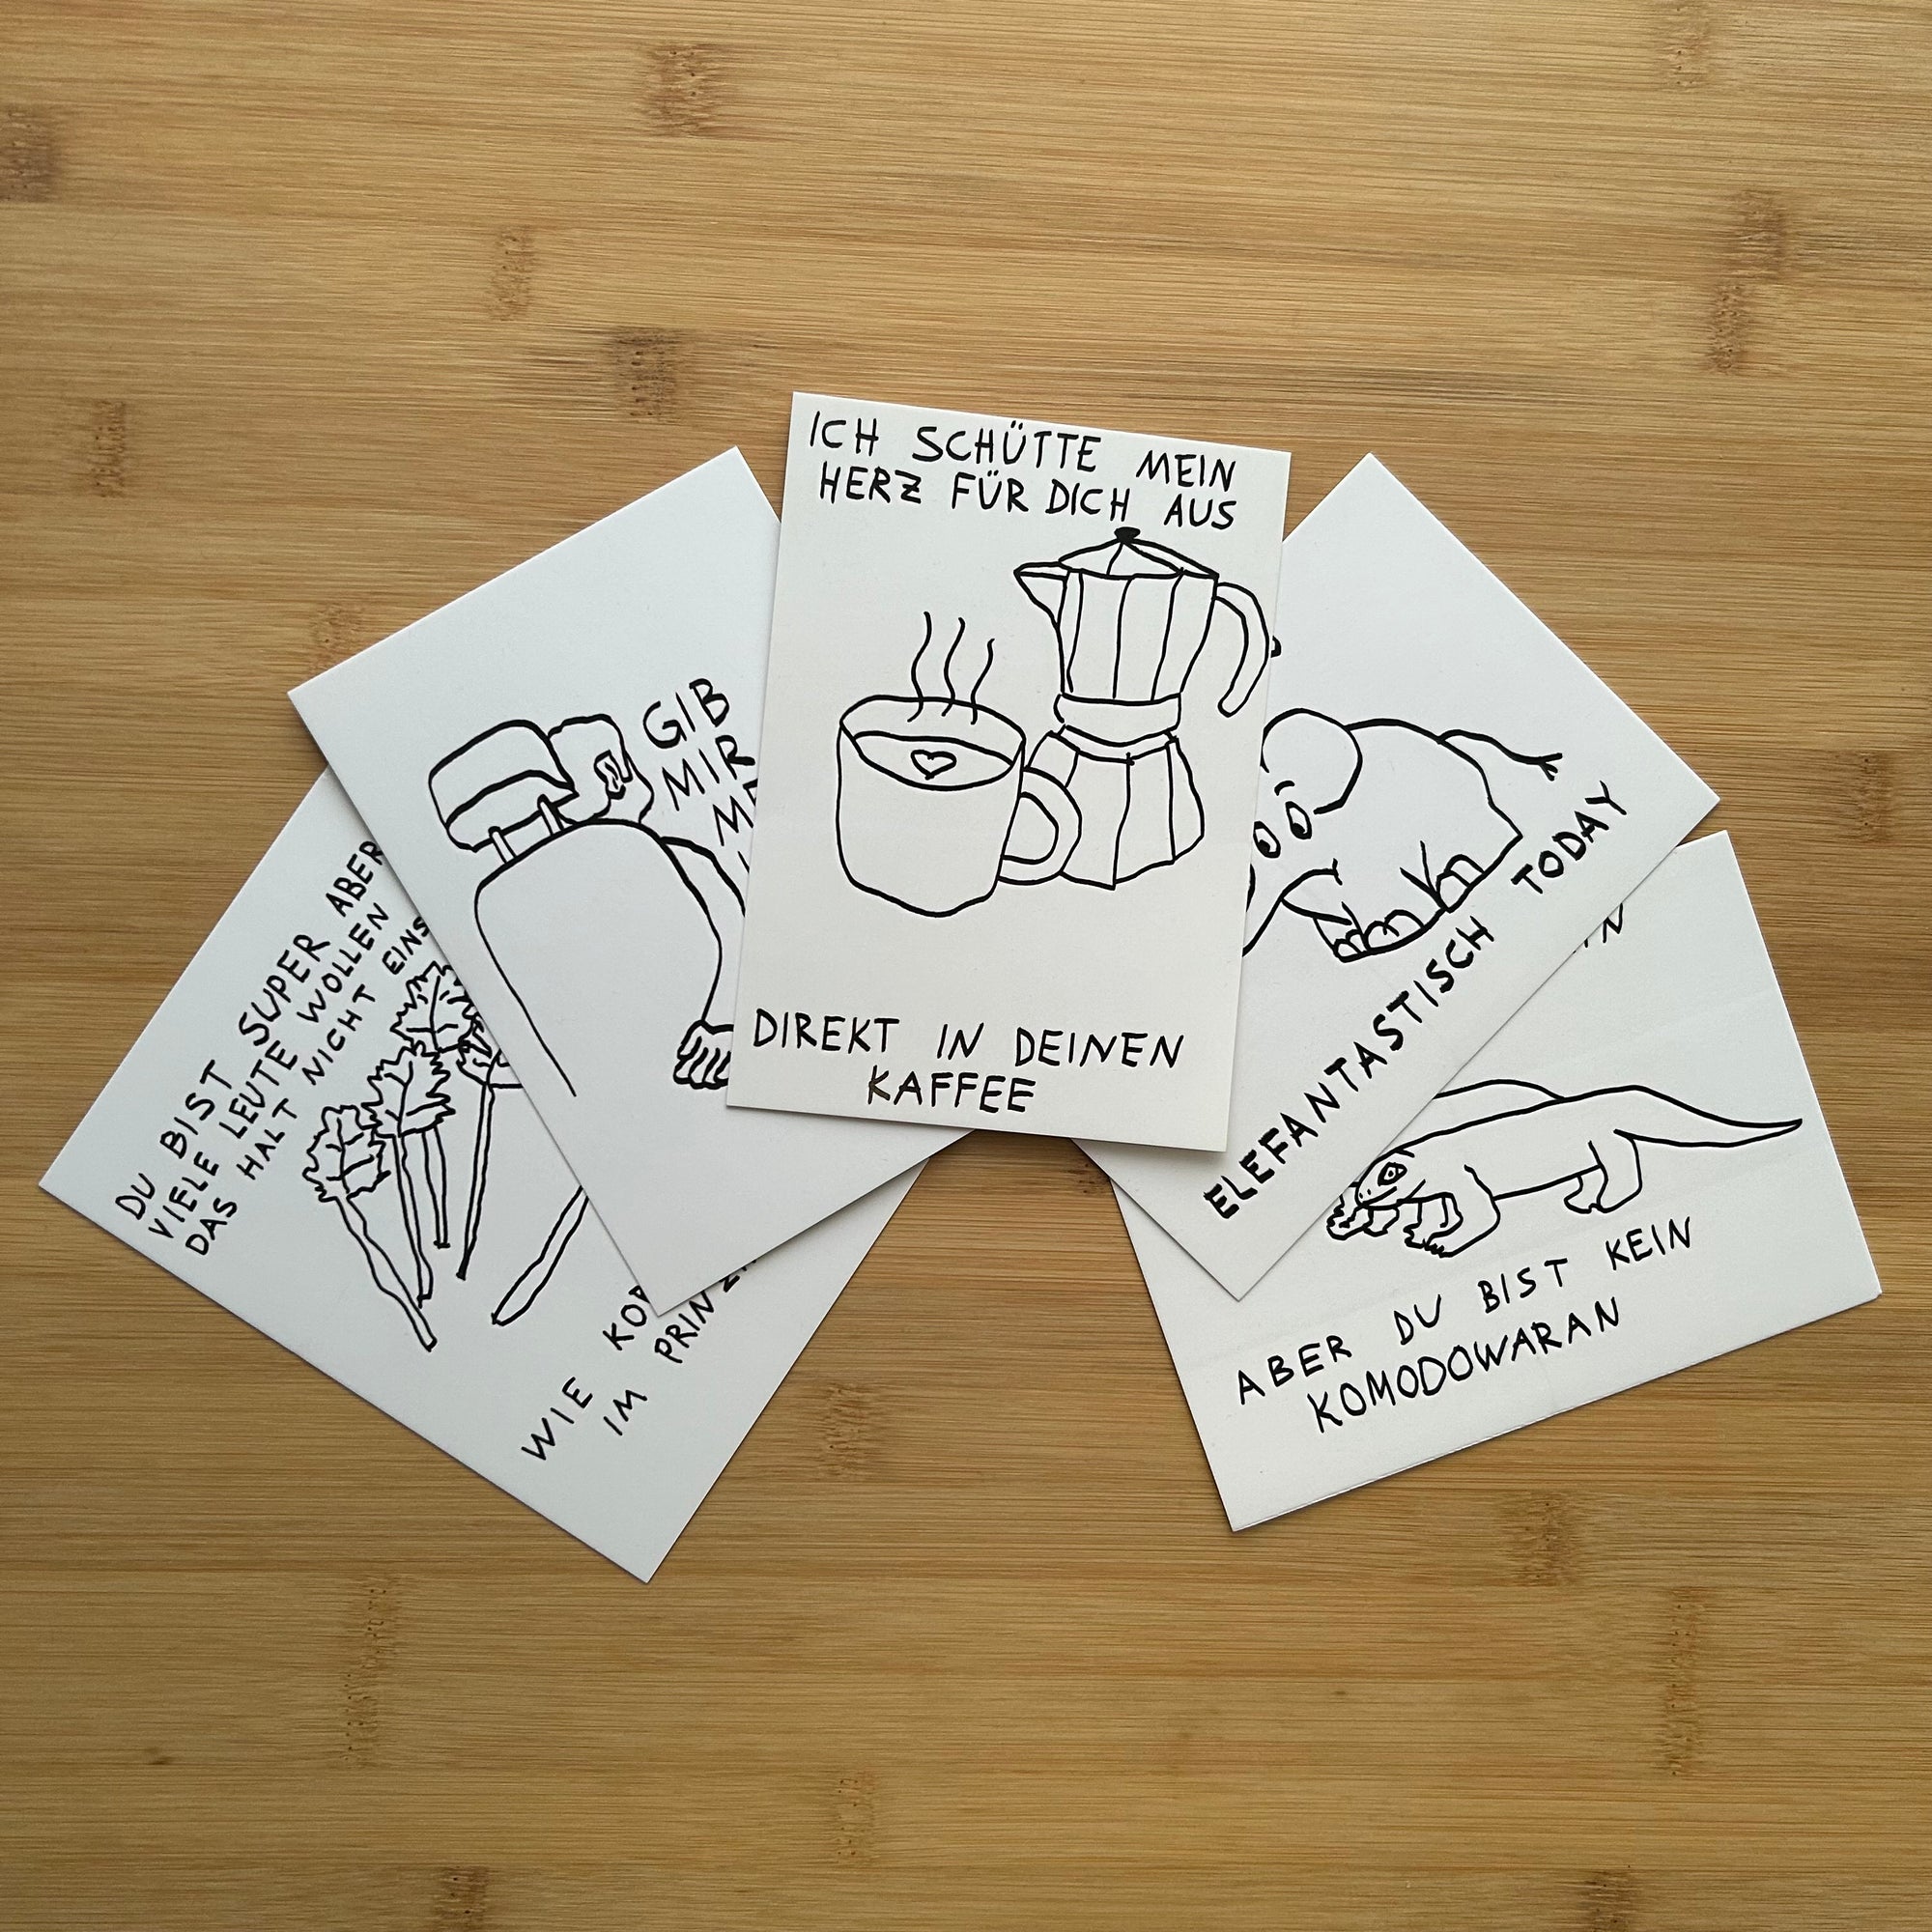 DU BIST SUPER ABER
VIELE LEUTE WOLLEN
DAS HALT NICHT
WIE
IM
GIB
MIR
ICH SCHÜTTE MEIN
HERZ FÜR DICH AUS
DIREKT IN DEINEN
KAFFEE
ELEFANTASTISCH TODAY
ABER DU BIST KEIN
KOMODOWARAN